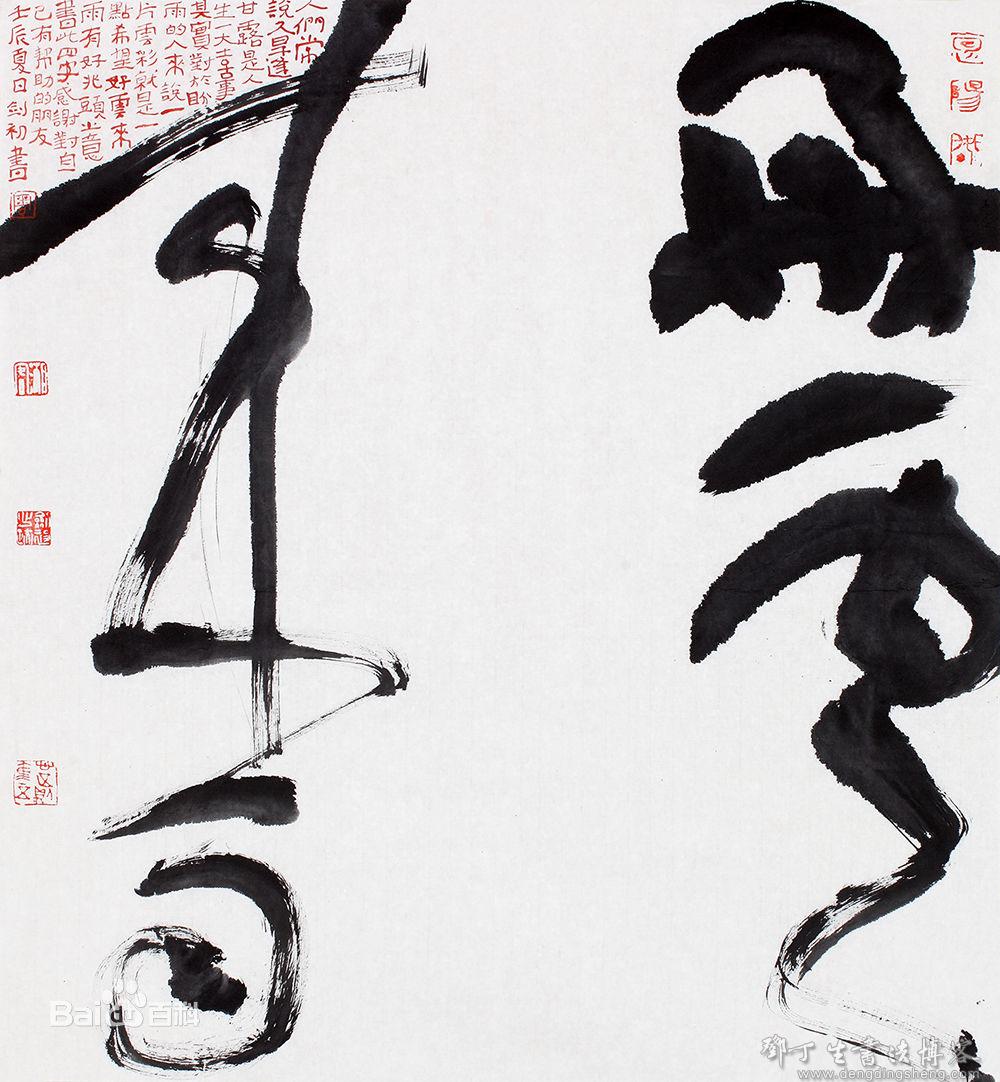 好雲
來雨
人們常
說久旱逢
甘露是人
生一大喜事
其實對於盼
雨的人來說一
片雲彩就是一
點希望好雲來
雨有好兆頭之意
書此四字感謝對自
己有幫助的朋友
壬辰夏日剑初書
Baidu百科
鄧丁生書法博客
www.dengdingsheng.com